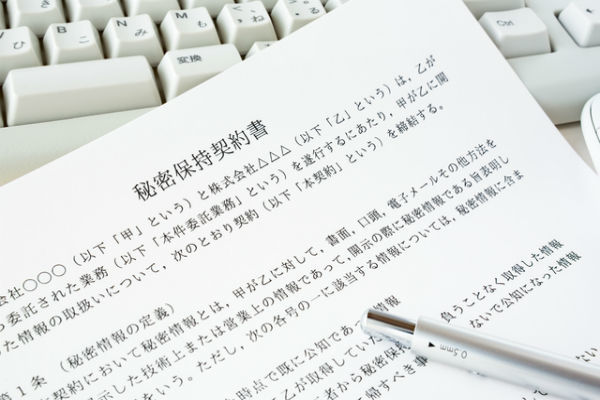 B
N
M
こ
み
も
ひ
ね
る
変換
Ctrl
秘密保持契約書
会社○○○（以下「甲」という）と株式会社△△△（以下「乙」という）は，乙が
ら委託された業務（以下「本件委託業務」という）を遂行するにあたり，甲が乙に開
た情報の取扱いについて，次のとおり契約（以下「本契約」という）を締結する。
第１条 （秘密情報の定義）
契約において秘密情報とは，甲が乙に対して，書面，口頭，電子メールその他方法を
示した技術上または営業上の情報であって，開示の際に秘密情報である旨表明し
をいう。ただし，次の各号の一に該当する情報については，秘密情報に含ま
時点で既に公知であ 情報
に乙が取得していた 情報
者から秘密保 負うことなく取得した情報
に帰すべき ないで公知になった情報
0.5mm